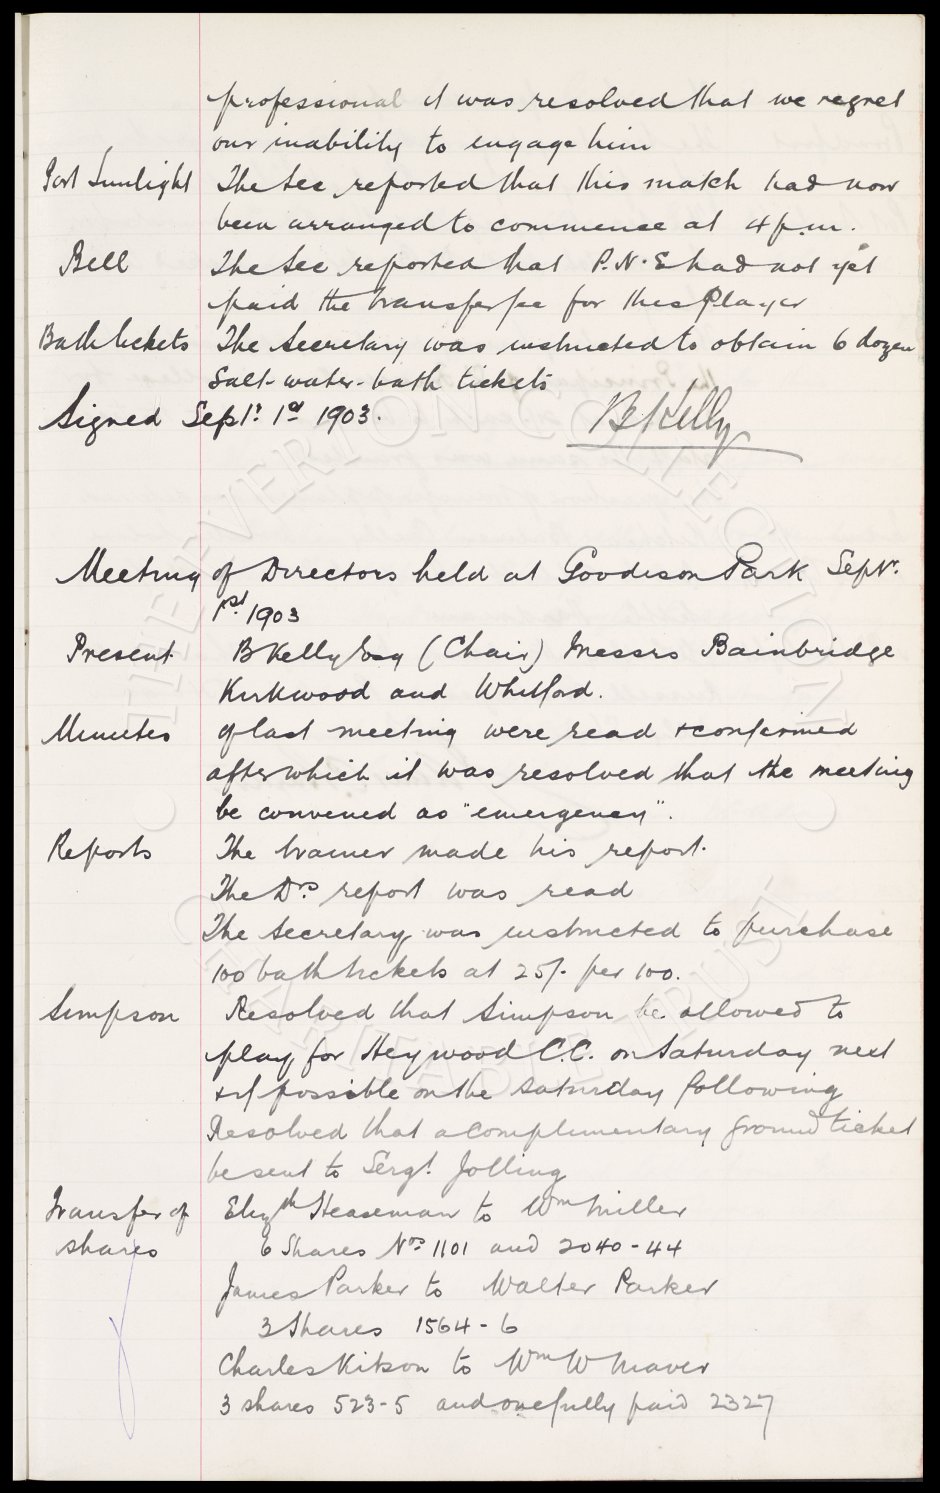 professional it was resolved that we regret
our inability to engage him
Port Sunlight The Sec reported that this match had now
been arranged to commence at 4 p.m.
Bell The Sec reported that P.N.E had not yet
paid the transfer fee for this Player
Bath tickets The Secretary was instructed to obtain 6 dozen
Salt-water-bath tickets
Signed Septr. 1st 1903. B Kelly
Meeting of Directors held at Goodison Park Septr.
1st 1903
Present B Kelly Esq (Chair) Messrs Bainbridge
Kirkwood and Whitford.
Minutes of last meeting were read & confirmed
after which it was resolved that the meeting
be convened as "emergency".
Reports The trainer made his report.
The Drs report was read
The Secretary was instructed to purchase
100 bath tickets at 25/- per 100.
Simpson Resolved that Simpson be allowed to
play for Heywood C.C. on Saturday next
& if possible on the Saturday following
Resolved that a complimentary ground ticket
be sent to Sergt. Jolling
Transfer of shares Elizth Heaseman to Wm Miller
6 Shares Nos 1101 and 2040-44
James Parker to Walter Parker
3 Shares 1564-6
Charles Kitson to Wm W Maver
3 shares 523-5 and one fully paid 2327
THE EVERTON COLLECTION
CHARITABLE TRUST